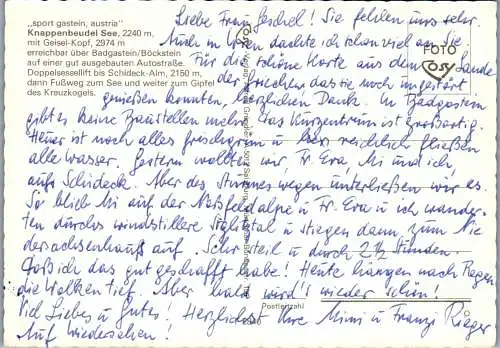 „sport gastein, austria"
Knappenbeudel See, 2240 m,
mit Geisel-Kopf, 2974 m
erreichbar über Badgastein/Böckstein
auf einer gut ausgebauten Autostraße.
Doppelsessellift bis Schideck-Alm, 2150 m,
dann Fußweg zum See und weiter zum Gipfel
des Kreuzkogels.
FOTO
Cosy
Liebe Frau! Sie fehlen uns sehr.
Auch in dachte ich schon viel an Sie.
Für die schöne Karte aus dem Lande
der Griechen, das sie noch ungestört
genießen konnten, herzlichen Dank. In Badgastein
gibt es keine Baustellen mehr, das Kurzentrum ist großartig.
Heuer ist noch alles frischgrün u. reichlich fließen
alle Wasser. Gestern wollten wir, Fr. Eva Mi und ich
aufs Schideck. Aber des Sturmes wegen unterließen wir es.
So blieb Mi auf der Naßfeldalpe u. Fr. Eva u. ich wander-
ten durchs windstillere u. stiegen dann zum Nie
dersachsenhaus auf. Sehr steil u. durch 2½ Stunden.
Daß ich das gut geschafft habe! Heute hängen nach Regen
die Wolken tief. Aber bald wird's wieder schön!
Postleitzahl
Viel Liebes u. Gutes! Herzlichst Ihre Mimi u. Franzi Rieger
Auf Wiedersehen!